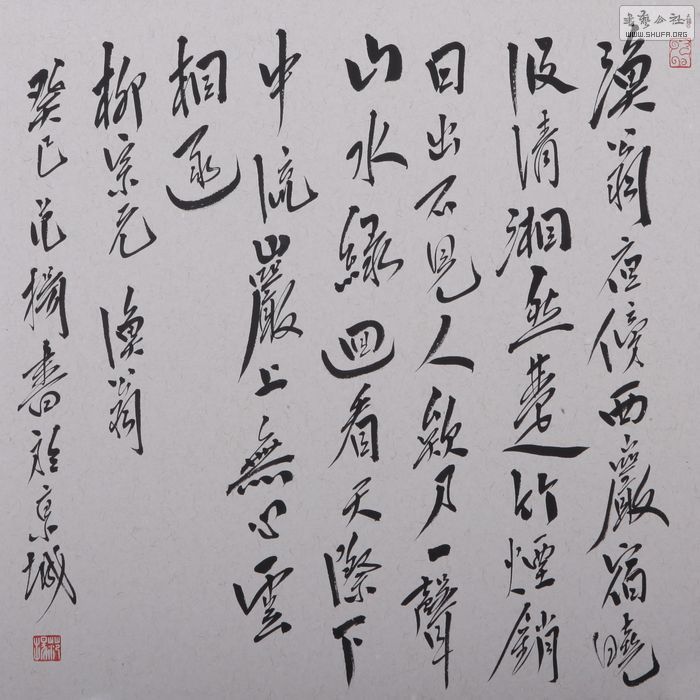 書藝公社
WWW.SHUFA.ORG
漁翁夜傍西巖宿曉
汲清湘燃楚竹煙銷
日出不見人欸乃一聲
山水緑迴看天際下
中流巖上無心雲
相逐
柳宗元 漁翁
癸巳范書於京城